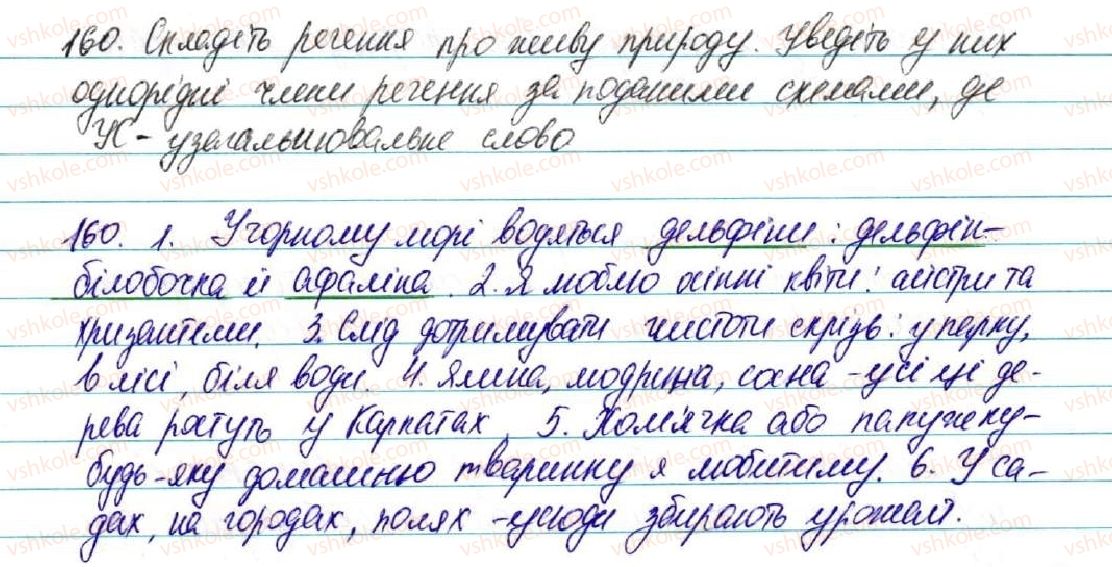 160. Складіть речення про живу природу. Уведіть у них
однорідні члени речення за поданими схемами, де
УС - узагальнювальне слово
160. 1. У Чорному морі водяться дельфіни: дельфін-
білобочка й афаліна. 2. Я люблю осінні квіти: айстри та
хризантеми. 3. Слід дотримувати чистоти скрізь: у парку,
в лісі, біля води. 4. Ялина, модрина, сосна - усі ці де-
рева ростуть у Карпатах. 5. Хом'ячка або папужку -
будь-яку домашню тваринку я любитиму. 6. У са-
дах, на городах, полях - усюди збирають урожай.